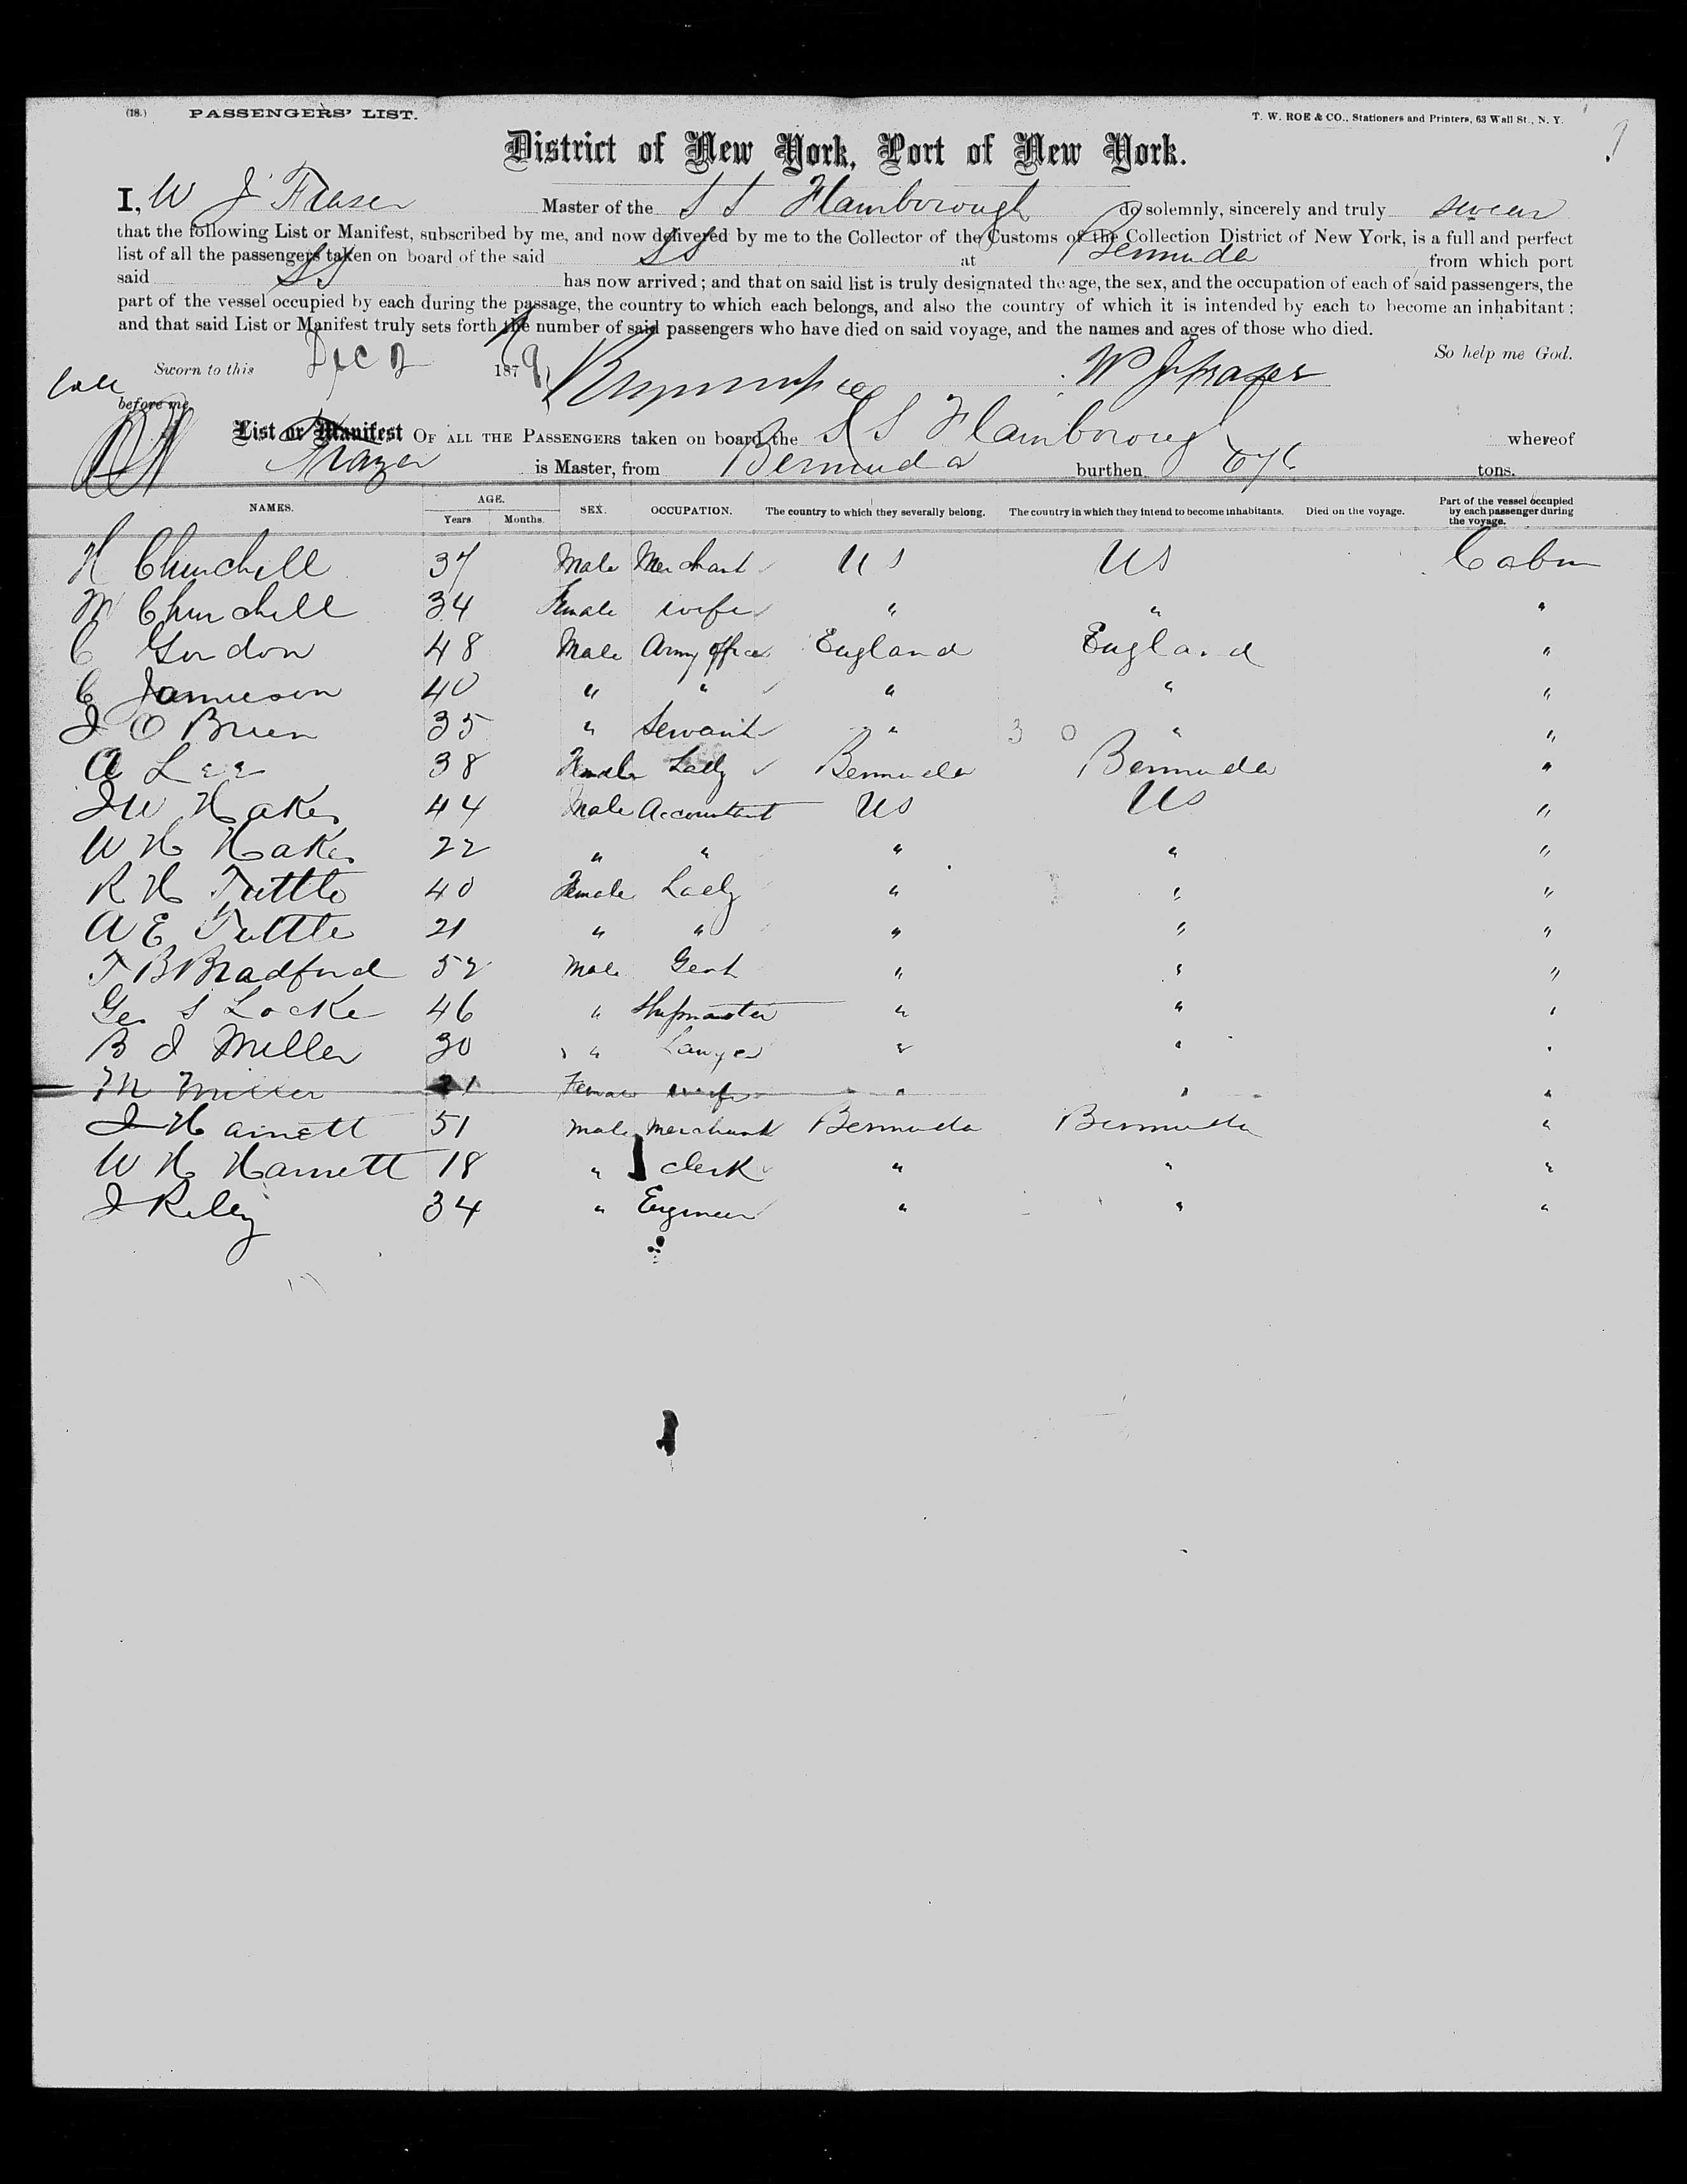 (18.) PASSENGERS' LIST. T. W. ROE & CO., Stationers and Printers, 63 Wall St., N. Y.
District of New York, Port of New York.
I, W J Fraser Master of the S S Flamborough do solemnly, sincerely and truly swear
that the following List or Manifest, subscribed by me, and now delivered by me to the Collector of the Customs of the Collection District of New York, is a full and perfect
list of all the passengers taken on board of the said SS at Bermuda from which port
said SS has now arrived; and that on said list is truly designated the age, the sex, and the occupation of each of said passengers, the
part of the vessel occupied by each during the passage, the country to which each belongs, and also the country of which it is intended by each to become an inhabitant;
and that said List or Manifest truly sets forth the number of said passengers who have died on said voyage, and the names and ages of those who died.
So help me God.
Sworn to this Dec 2 1879 W J Frazer
before me
List or Manifest OF ALL THE PASSENGERS taken on board the S S Flamboroug whereof
Frazer is Master, from Bermuda burthen 676 tons.
NAMES. AGE. Years. Months. SEX. OCCUPATION. The country to which they severally belong. The country in which they intend to become inhabitants. Died on the voyage. Part of the vessel occupied by each passenger during the voyage.
H Churchill 37 Male Merchant US US Cabin
M Churchill 34 Female wife " " "
C Gordon 48 Male Army officer England England "
C Jamieson 40 " " " " "
J O Brien 35 " Servant " 3 0 " "
A Lee 38 Female Lady Bermuda Bermuda "
J W Hakes 44 Male Accountant US US "
W H Hakes 22 " " " " "
R H Tuttle 40 Female Lady " " "
A E Tuttle 21 " " " " "
T B Bradford 52 Male Gent " " "
Geo S Locke 46 " Shipmaster " " "
B J Miller 30 " Lawyer " " "
M Miller 21 Female wife " " "
J Harnett 51 male merchant Bermuda Bermuda "
W H Harnett 18 " clerk " " "
J Riley 34 " Engineer " " "